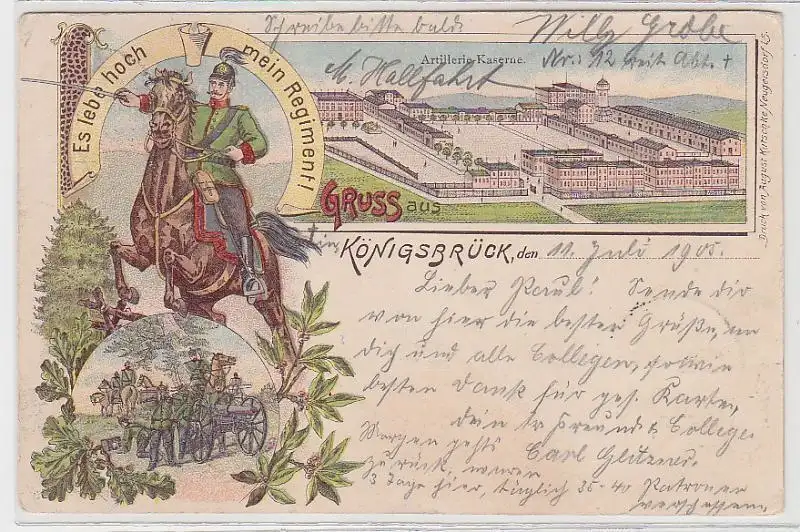 Schreibe bitte bald.
Willy Grobe
Es lebe hoch mein Regiment!
Artillerie-Kaserne.
Nr. 12 reit. Abt. +
M. Hallfahrt
Druck von August Kutschke, Neugersdorf i/S.
GRUSS aus
KÖNIGSBRÜCK, den 11. Juli 1905.
Lieber Paul! Sende dir
von hier die besten Grüße, an
dich und alle Collegen, sowie
besten Dank für ges. Karte,
dein tr Freund & College.
Morgen gehts Carl
zurück, waren
3 Tage hier, täglich 35-40 Patronen
verschossen.